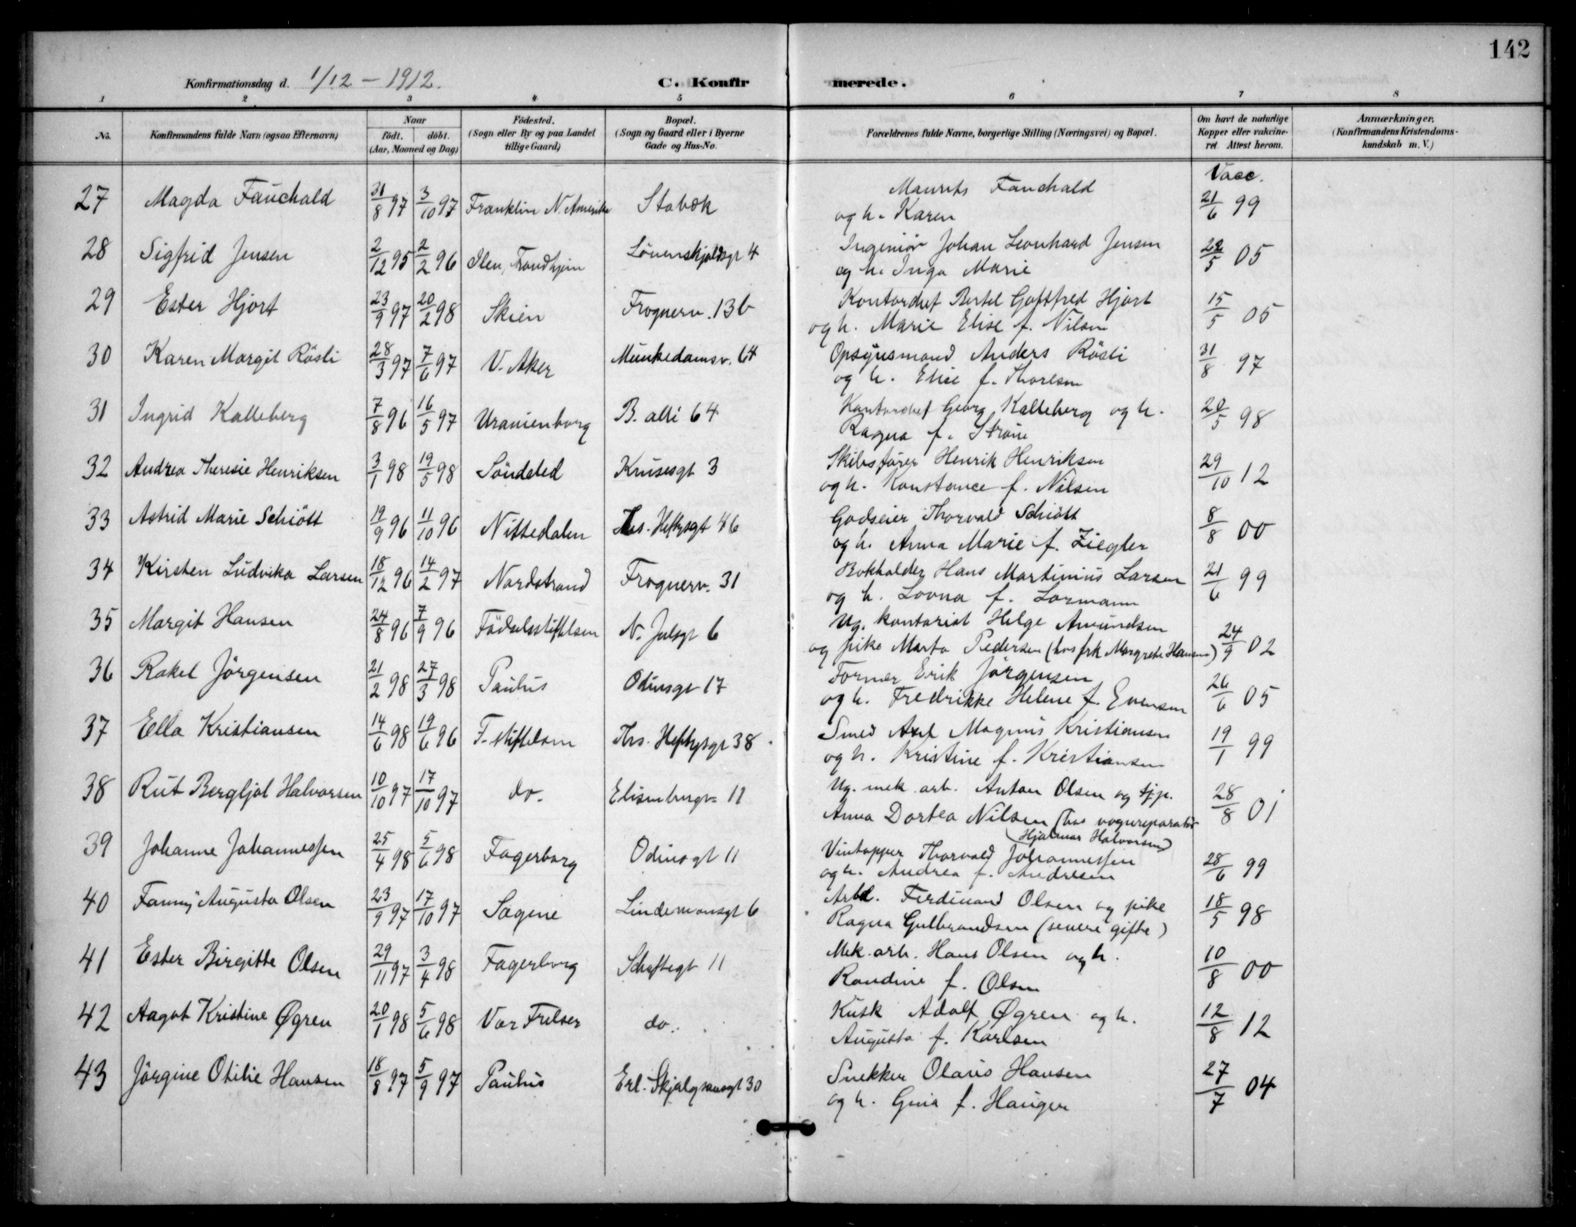 142
Konfirmationsdag d. 1/12 - 1912.
C. Konfirmerede.
1 2 3 4 5 6 7 8
No. Konfirmandens fulde Navn (ogsaa Efternavn) Naar født. døbt. (Aar, Maaned og Dag) Fødested. (Sogn eller By og paa Landet tillige Gaard) Bopæl. (Sogn og Gaard eller i Byerne Gade og Hus-No. Forældrenes fulde Navne, borgerlige Stilling (Næringsvei) og Bopæl. Om havt de naturlige Kopper eller vakcineret Attest herom. Anmærkninger. (Konfirmandens Kristendomskundskab m. V.)
Vacc.
27 Magda Fauchald 31/8 97 3/10 97 Franklin N. Amerika Stabæk Maurits Fauchald 21/6 99
og h. Karen
28 Sigfrid Jensen 2/12 95 2/2 96 Ilen, Trondhjem Løvenskjoldsgt 4 Ingeniør Johan Leonhard Jensen 22/5 05
og h. Inga Marie
29 Ester Hjort 23/9 97 20/2 98 Skien Frognerv. 13b Kontorchef Bertel Gottfred Hjort 15/5 05
og h. Marie Elise f. Nilsen
30 Karen Margit Rösli 28/3 97 7/6 97 V. Aker Munkedamsv. 64 Opsynsmand Anders Rösli 31/8 97
og h. Elise f. Thorlsen
31 Ingrid Kalleberg 7/8 96 16/5 97 Uranienborg B. allé 64 Kontorchef Georg Kalleberg og h. 20/5 98
Ragna f.
32 Andrea Theresie Henriksen 3/1 98 19/5 98 Søndeled Krusesgt 3 Skibsfører Henrik Henriksen 29/10 12
og h. Konstance f. Nilsen
33 Astrid Marie Schiött 19/9 96 11/10 96 Nittedalen Ths. Heftysgt 46 Godseier Thorvald Schiött 8/8 00
og h. Anna Marie f. Ziegler
34 Kirsten Ludvika Larsen 18/12 96 14/2 97 Nordstrand Frognerv. 31 Bokholder Hans Martinius Larsen 21/6 99
og h. Lovna f. Lormann
35 Margit Hansen 24/8 96 7/9 96 Födselsstiftelsen N. Julsgt 6 Ug. kontorist Helge Amundsen 24/9 02
og pike Marta Pedersen (hos frk Margrete Hansen)
36 Rakel Jörgensen 21/2 98 27/3 98 Paulus Odinsgt 17 Former Erik Jörgensen 26/6 05
og h. Fredrikke Helene f. Evensen
37 Ella Kristiansen 14/6 98 19/6 96 F. stiftelsen Ths. Heftysgt 38 Smed Axel Magnus Kristiansen 19/1 99
og h. Kristine f. Kristiansen
38 Rut Bergljot Halvorsen 10/10 97 17/10 97 do. Elisenbergv 11 Ug. mek. arb. Anton Olsen og tjp. 28/8 01
Anna Dortea Nilsen (hos vognreparatör
Hjalmar Halvorsen)
39 Johanne Johannessen 25/4 98 5/6 98 Fagerborg Odinsgt 11 Vintapper Thorvald Johannessen 28/6 99
og h. Andrea f. Andresen
40 Fanny Augusta Olsen 23/9 97 17/10 97 Sagene Lindemansgt 6 Arbd. Ferdinand Olsen og pike 18/5 98
Ragna Gulbrandsen (senere gifte)
41 Ester Birgitte Olsen 29/11 97 3/4 98 Fagerborg Schaftesgt 11 Mek. arb. Hans Olsen og h. 10/8 00
Randine f. Olsen
42 Aagot Kristine Øgren 20/1 98 5/6 98 Vor Frelser do. Kusk Adolf Øgren og h. 12/8 12
Augusta f. Karlsen
43 Jörgine Otilie Hansen 18/8 97 5/9 97 Paulus Erl. Skjalgsønsgt 30 Snekker Olaus Hansen 27/7 04
og h. Gina f. Hauger